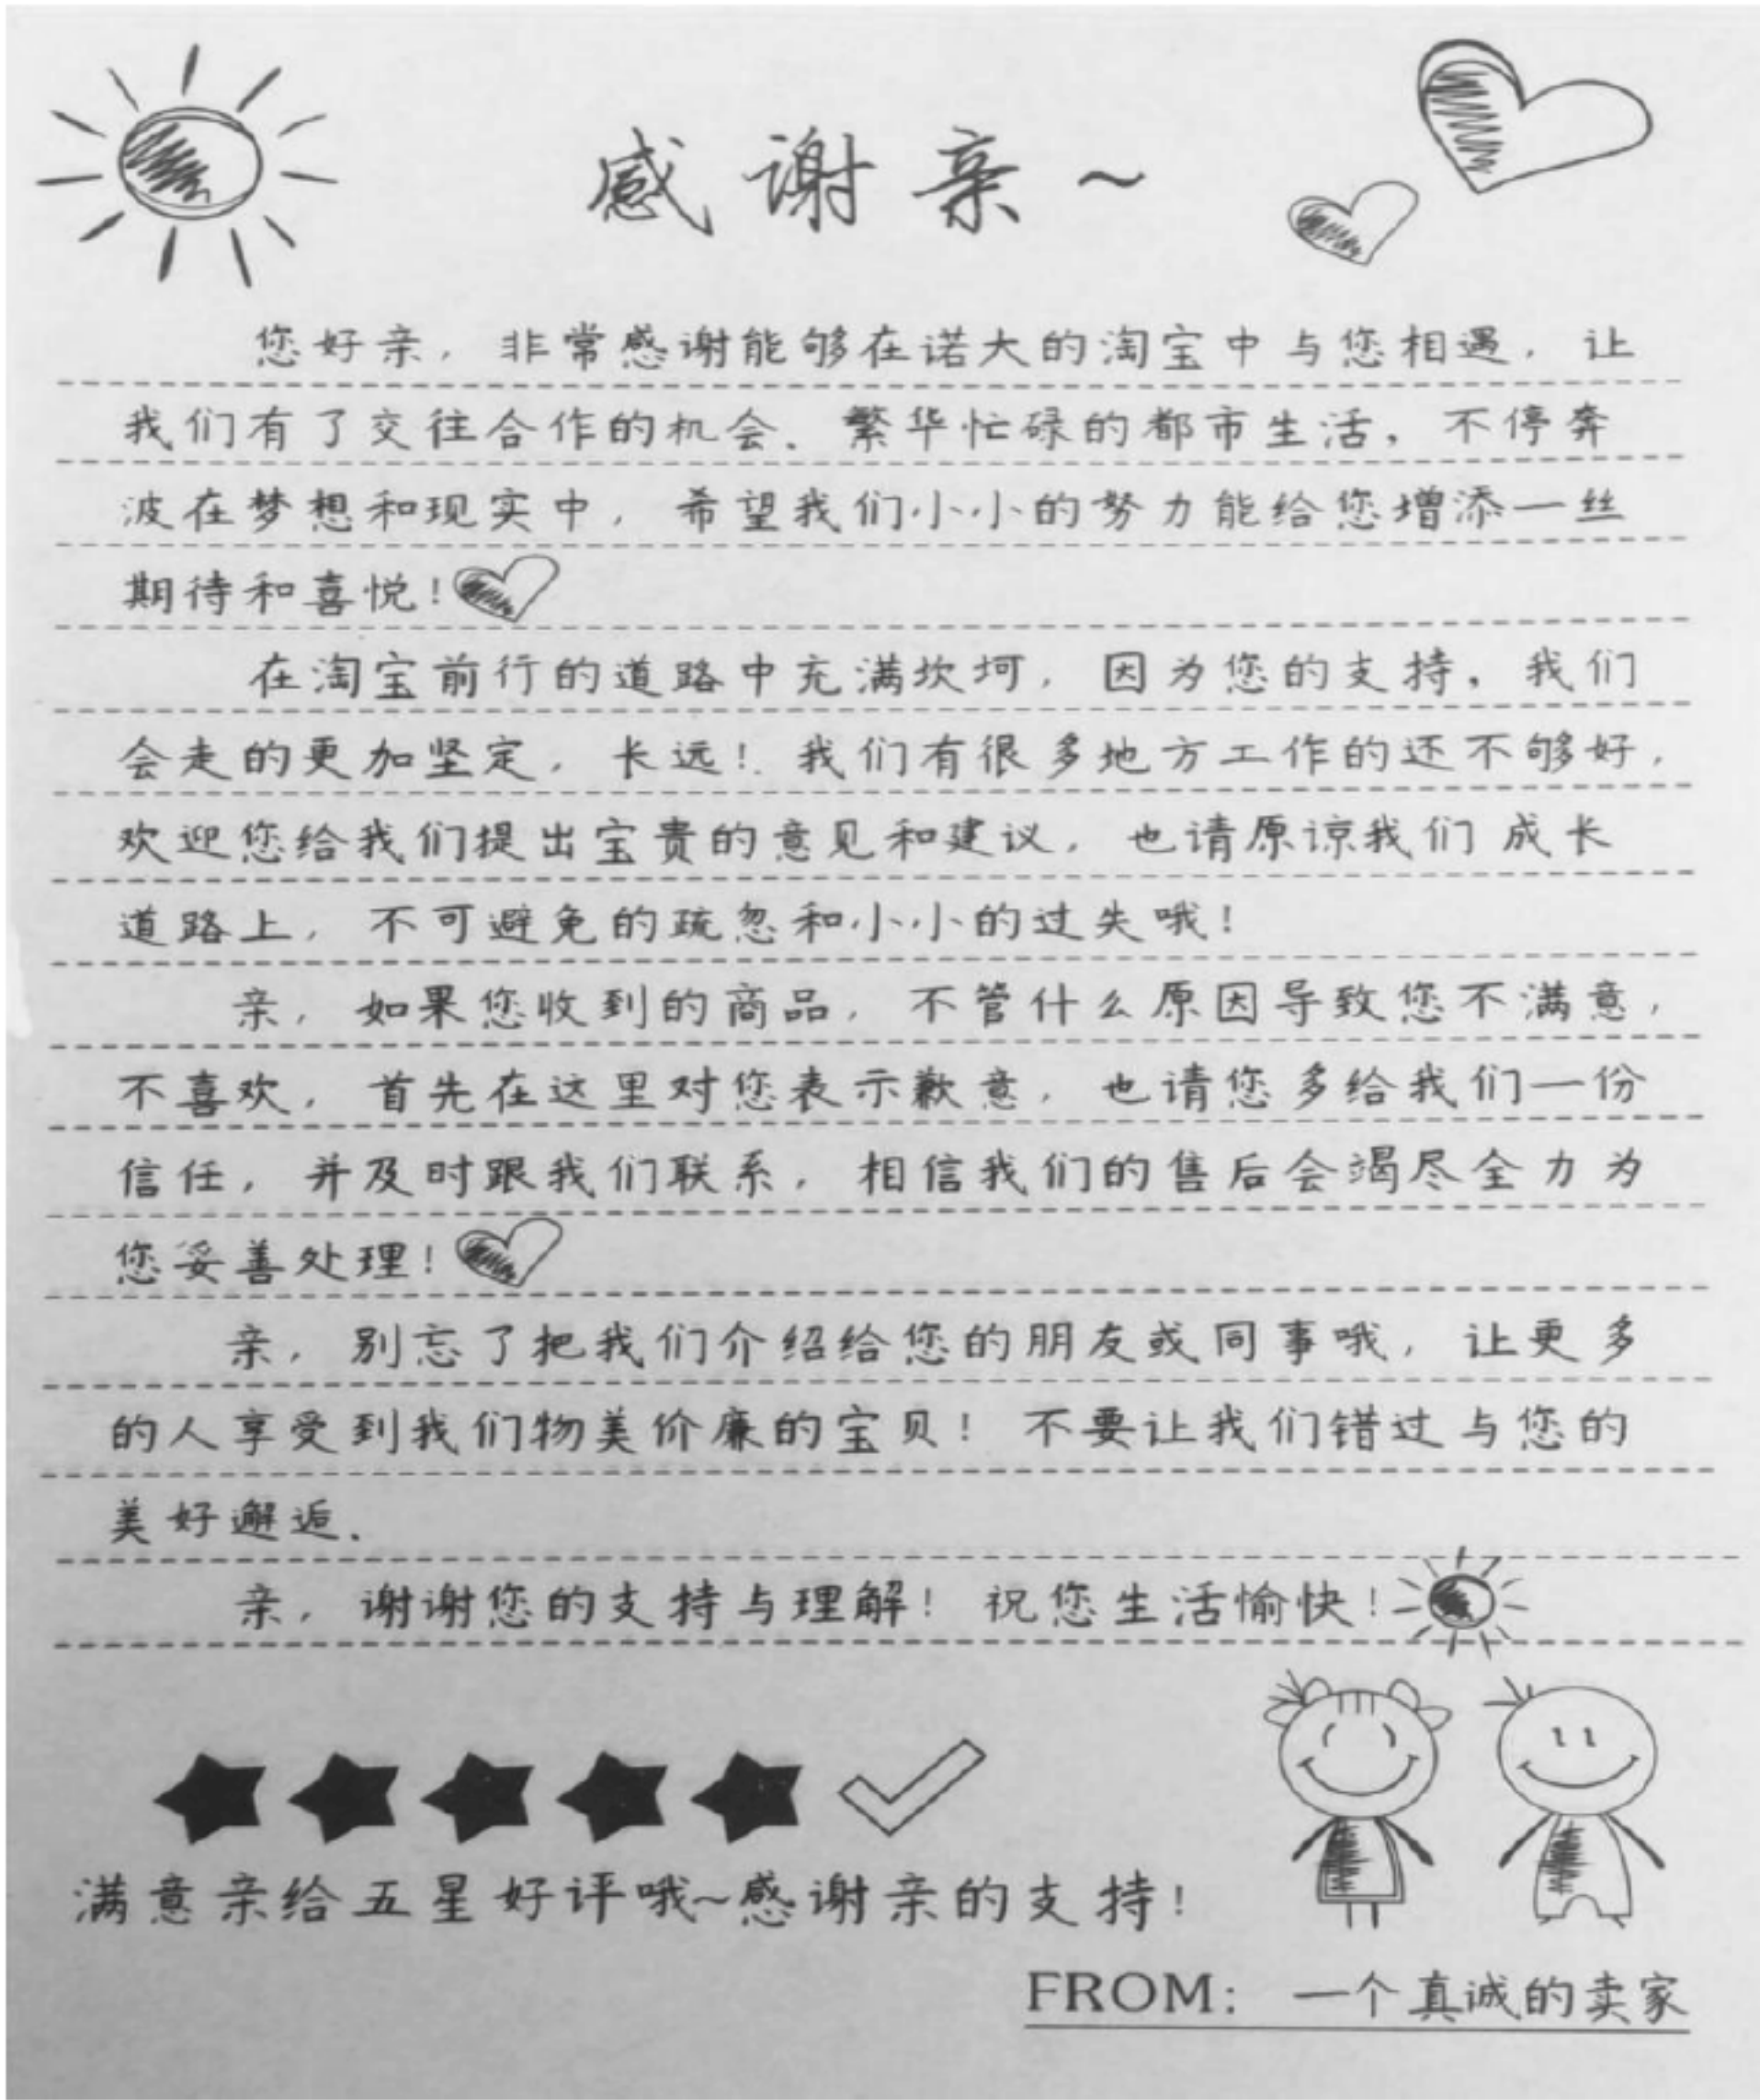 感谢亲~
您好亲，非常感谢能够在诺大的淘宝中与您相遇，让
我们有了交往合作的机会、繁华忙碌的都市生活，不停奔
波在梦想和现实中，希望我们小小的努力能给您增添一丝
期待和喜悦！
在淘宝前行的道路中充满坎坷，因为您的支持，我们
会走的更加坚定，长远！我们有很多地方工作的还不够好，
欢迎您给我们提出宝贵的意见和建议，也请原谅我们成长
道路上，不可避免的疏忽和小小的过失哦！
亲，如果您收到的商品，不管什么原因导致您不满意，
不喜欢，首先在这里对您表示歉意，也请您多给我们一份
信任，并及时跟我们联系，相信我们的售后会竭尽全力为
您妥善处理！
亲，别忘了把我们介绍给您的朋友或同事哦，让更多
的人享受到我们物美价廉的宝贝！不要让我们错过与您的
美好邂逅、
亲，谢谢您的支持与理解！祝您生活愉快！
满意亲给五星好评哦~感谢亲的支持！
FROM：一个真诚的卖家